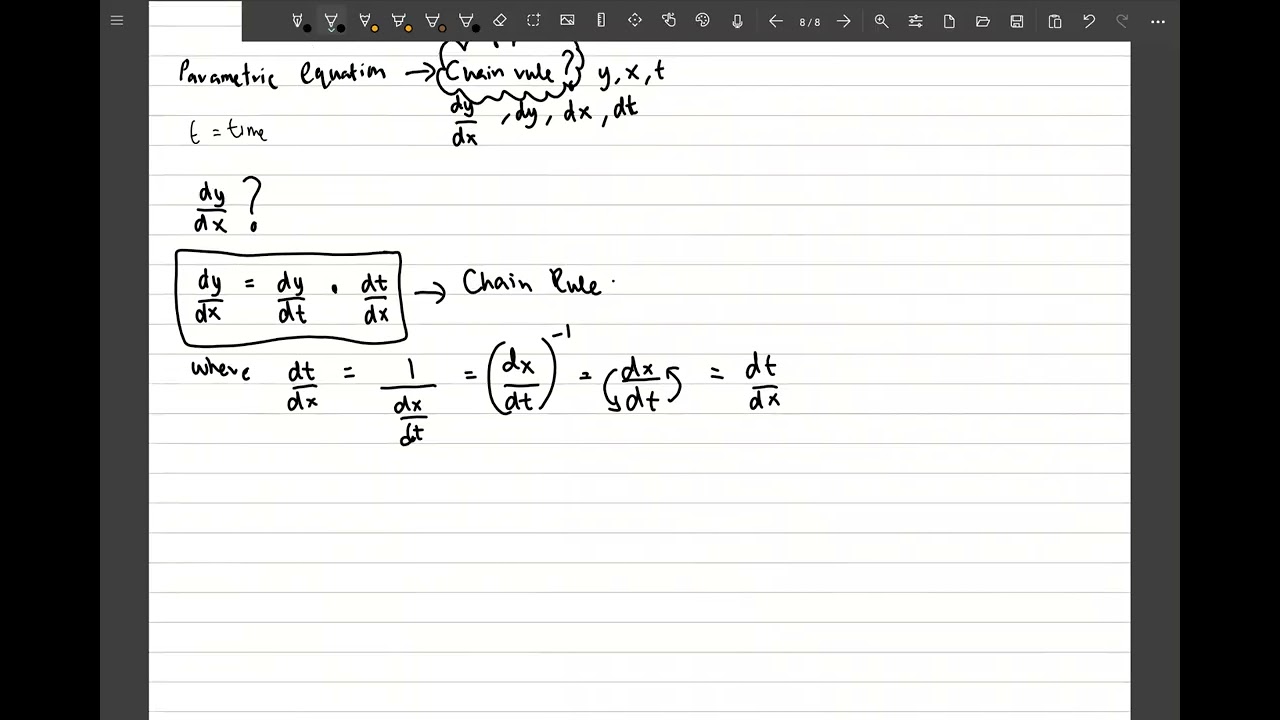 8/8
Parametric equation → Chain rule ? y, x, t
dy/dx , dy, dx, dt
t = time
dy/dx ?
dy/dx = dy/dt · dt/dx → Chain Rule .
where dt/dx = 1/(dx/dt) = (dx/dt)^-1 = (dx/dt) = dt/dx